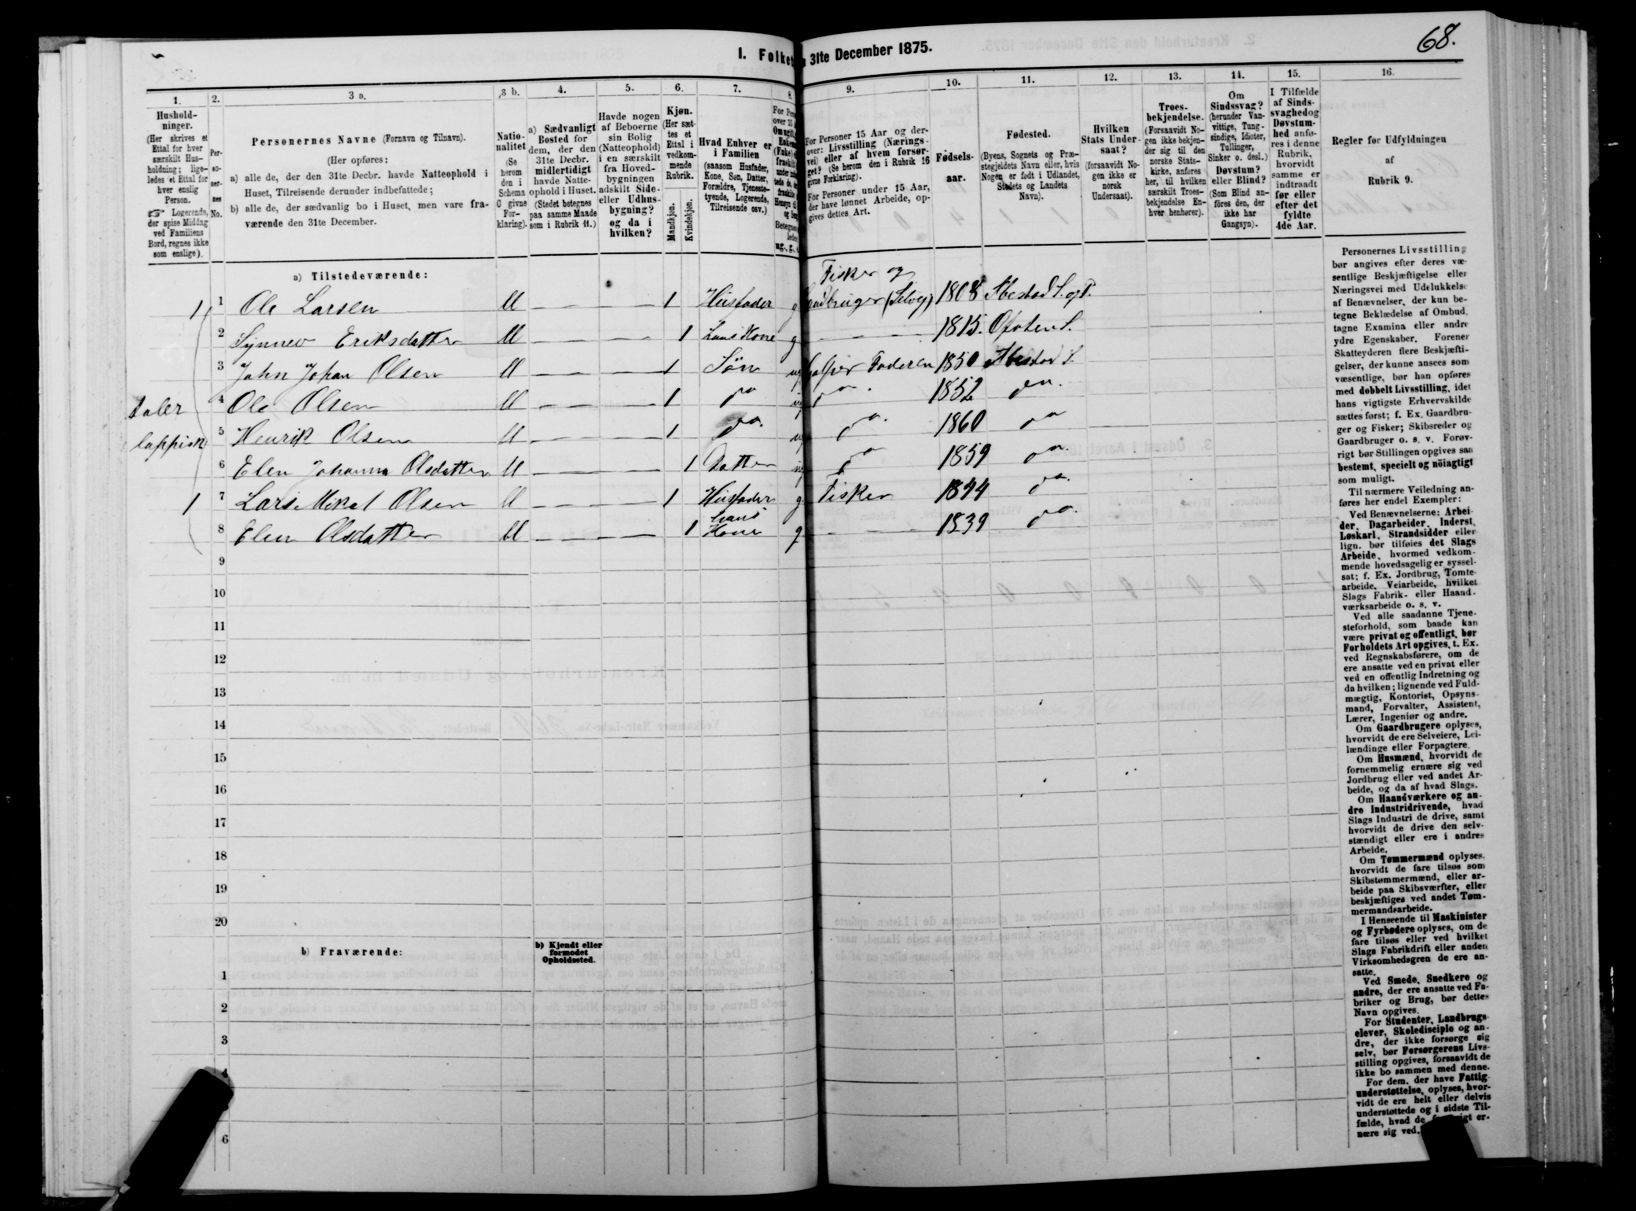 68.
I. Folket
31te December 1875.
1.
2.
3 a.
3 b.
4.
5.
6.
7.
8.
9.
10.
11.
12.
13.
14.
15.
16.
Hushold-
ninger.
(Her skrives et
Ettal for hver
særskilt Hus-
holdning; lige-
ledes et Ettal for
hver enslig
Person.
☞ Logerende,
der spise Middag
ved Familiens
Bord, regnes ikke
som enslige).
Per-
so-
ner-
nes
No.
Personernes Navne (Fornavn og Tilnavn).
(Her opføres:
a) alle de, der den 31te Decbr. havde Natteophold i
Huset, Tilreisende derunder indbefattede;
b) alle de, der sædvanlig bo i Huset, men vare fra-
værende den 31te December.
Natio-
nalitet
(Se
herom
den i
Schema
C givne
For-
klaring).
a) Sædvanligt
Bosted for
dem, der den
31te Decbr.
midlertidigt
havde Natte-
ophold i Huset.
(Stedet betegnes
paa samme Maade
som i Rubrik 11.)
Havde nogen
af Beboerne
sin Bolig
(Natteophold)
i en særskilt
fra Hoved-
bygningen
adskilt Side-
eller Udhus-
bygning?
og da i
hvilken?
Kjøn.
(Her sæt-
tes et
Ettal i
vedkom-
mende
Rubrik.
Mandkjøn.
Kvindekjøn.
Hvad Enhver er
i Familien
(saasom Husfader,
Kone, Søn, Datter,
Forældre, Tjeneste-
tyende, Logerende,
Tilreisende osv.)
For Personer 15 Aar og der-
over: Livsstilling (Nærings-
vei) eller af hvem forsør-
get? (Se herom den i Rubrik 16
givne Forklaring).
For Personer under 15 Aar,
der have lønnet Arbeide, op-
gives dettes Art.
Fødsels-
aar.
Fødested.
(Byens, Sognets og Præ-
stegjeldets Navn eller, hvis
Nogen er født i Udlandet,
Stedets og Landets
Navn).
Hvilken
Stats Under-
saat?
(forsaavidt No-
gen ikke er
norsk
Undersaat).
Troes-
bekjendelse.
(Forsaavidt No-
gen ikke bekjen-
der sig til den
norske Stats-
kirke, anføres
her, til hvilken
særskilt Troes-
bekjendelse En-
hver henhører).
Om
Sindssvag?
(herunder Van-
vittige, Tung-
sindige, Idioter,
Tullinger,
Sinker o. desl.)
Døvstum?
eller Blind?
(Som Blind an-
føres den, der
ikke har
Gangsyn).
I Tilfælde
af Sinds-
svaghed og
Døvstum-
hed anfø-
res i denne
Rubrik,
hvorvidt
samme er
indtraadt
før eller
efter det
fyldte
4de Aar.
Regler for Udfyldningen
af
Rubrik 9.
a) Tilstedeværende:
Fisker og
1 1 Ole Larsen M 1 Husfader g Jordbruger (Selvej) 1808 Ibestad S. og P.
2 Synnev Eriksdatter M 1 hans Kone g 1815 Ofoten S.
3 John Johan Olsen M 1 Søn ug hjelper Faderen 1850 Ibestad S.
taler 4 Ole Olsen M 1 do ug do 1852 do
lappisk 5 Henrik Olsen M 1 do ug do 1860 do
6 Elen Johanna Olsdatter M 1 Datter ug do 1859 do
1 7 Lars Mekal Olsen M 1 Husfader g Fisker 1844 do
8 Elen Olsdatter M 1 hans Kone g 1839 do
9
10
11
12
13
14
15
16
17
18
19
20
b) Fraværende:
b) Kjendt eller
formodet
Opholdssted.
1
2
3
4
6
Personernes Livsstilling
bør angives efter deres væ-
sentlige Beskjæftigelse eller
Næringsvei med Udelukkelse
af Benævnelser, der kun be-
tegne Beklædelse af Ombud,
tagne Examina eller andre
ydre Egenskaber. Forener
Skatteyderen flere Beskjæfti-
gelser, der kunne ansees som
væsentlige, bør han opføres
med dobbelt Livsstilling, idet
hans vigtigste Erhvervskilde
sættes først; f. Ex. Gaardbru-
ger og Fisker; Skibsreder og
Gaardbruger o. s. v. Forøv-
rigt bør Stillingen opgives saa
bestemt, specielt og nöiagtigt
som muligt.
Til nærmere Veiledning an-
føres her endel Exempler:
Ved Benævnelserne: Arbei-
der, Dagarbeider, Inderst,
Løskarl, Strandsidder eller
lign. bør tilføies det Slags
Arbeide, hvormed vedkom-
mende hovedsagelig er syssel-
sat; f. Ex. Jordbrug, Tomte-
arbeide, Veiarbeide, hvilket
Slags Fabrik- eller Haand-
værksarbeide o. s. v.
Ved alle saadanne Tjene-
steforhold, som baade kan
være privat og offentligt, bør
Forholdets Art opgives, t. Ex.
ved Regnskabsførere, om de
ere ansatte ved en privat eller
ved en offentlig Indretning og
da hvilken; lignende ved Fuld-
mægtig, Kontorist, Opsyns-
mand, Forvalter, Assistent,
Lærer, Ingeniør og andre.
Om Gaardbrugere oplyses,
hvorvidt de ere Selveiere, Lei-
lændinge eller Forpagtere.
Om Husmænd, hvorvidt de
fornemmelig ernære sig ved
Jordbrug eller ved andet Ar-
beide, og da af hvad Slags.
Om Haandværkere og an-
dre Industridrivende, hvad
Slags Industri de drive, samt
hvorvidt de drive den selv-
stændigt eller ere i andres
Arbeide.
Om Tømmermænd oplyses,
hvorvidt de fare tilsøs som
Skibstømmermænd, eller ar-
beide paa Skibsværfter, eller
beskjæftiges ved andet Tøm-
mermandsarbeide.
I Henseende til Maskinister
og Fyrbødere oplyses, om de
fare tilsøs eller ved hvilket
Slags Fabrikdrift eller anden
Virksomhedsgren de ere an-
satte.
Ved Smede, Snedkere og
andre, der ere ansatte ved Fa-
briker og Brug, bør dettes
Navn opgives.
For Studenter, Landbrugs-
elever, Skoledisciple og an-
dre, der ikke forsørge sig
selv, bør Forsørgerens Livs-
stilling opgives, forsaavidt de
ikke bo sammen med denne.
For dem, der have Fattig-
understøttelse, oplyses, hvor-
vidt de ere helt eller delvis
understøttede og i sidste Til-
fælde, hvad de er-
nære sig ved.